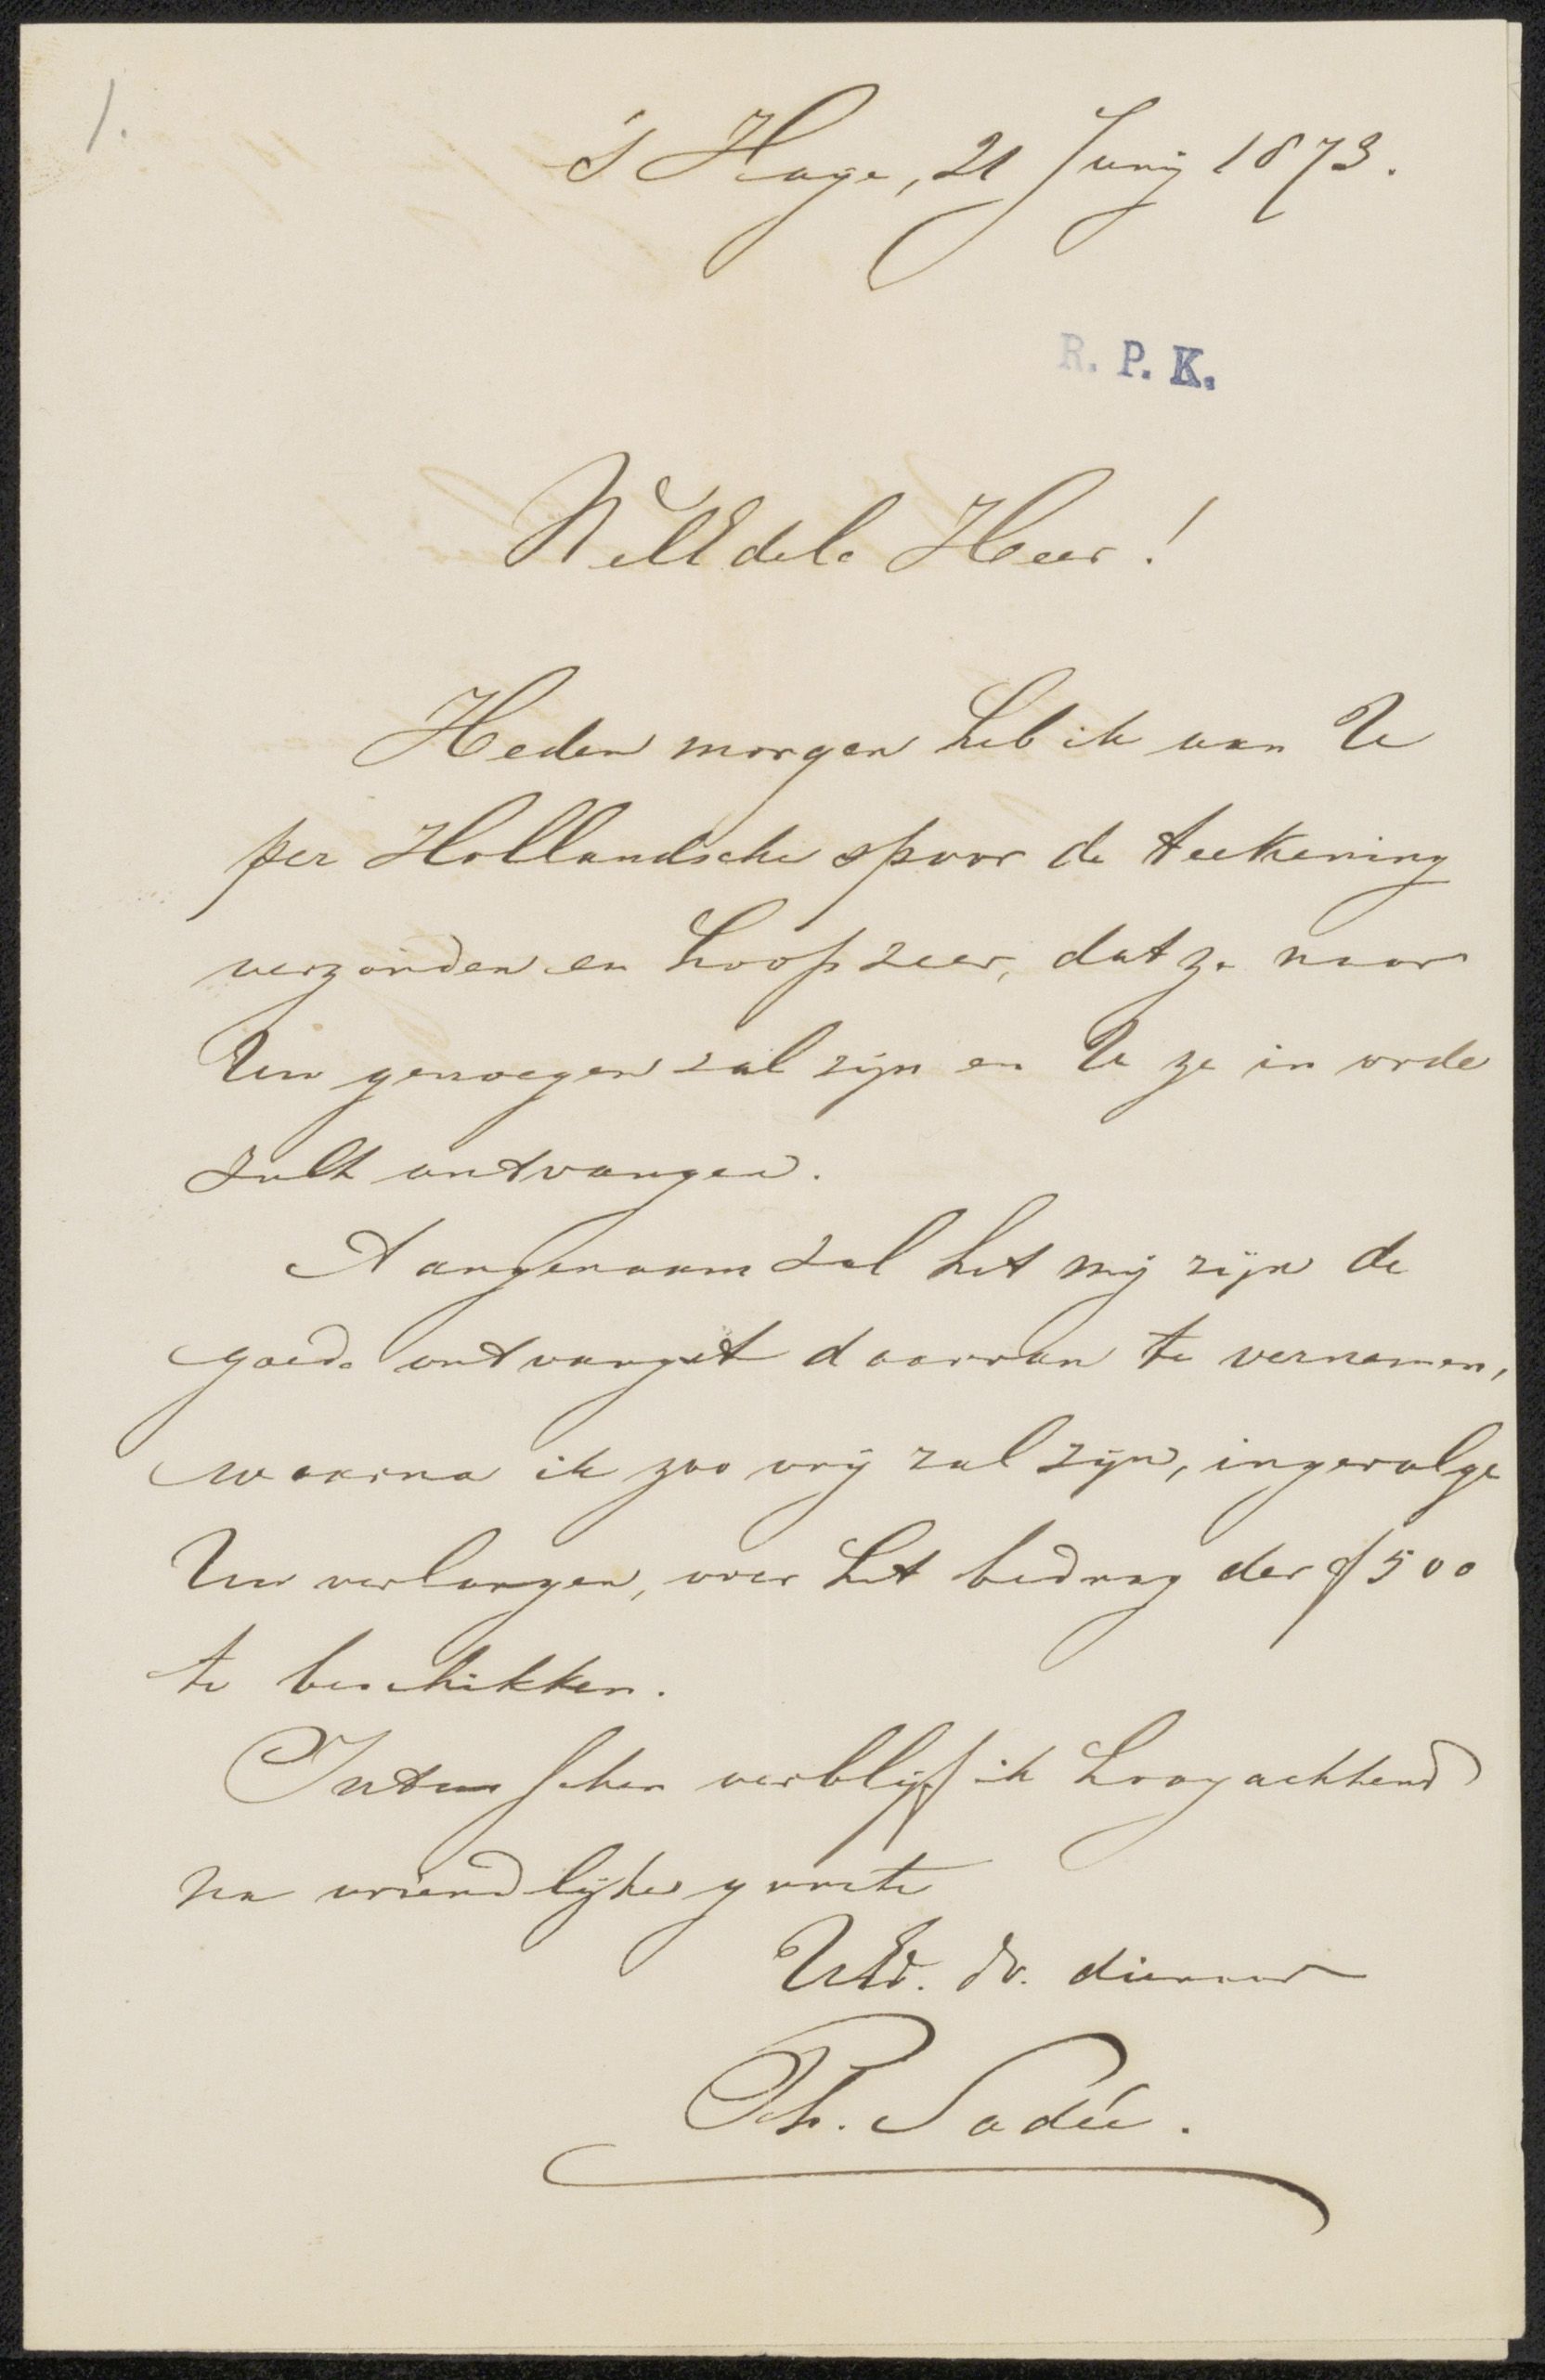 1.
's Hage, 21 Junij 1873.
R. P. K.
WelEdele Heer!
Heden morgen heb ik aan U
per Hollandsche spoor de teekening
verzonden en hoop zeer, dat ze naar
Uw genoegen zal zijn en U ze in orde
zult ontvangen.
Aangenaam zal het mij zijn de
goede ontvangst daarvan te vernemen,
waarna ik zoo vrij zal zijn, ingevolge
Uw verlangen, over het bedrag der ƒ 500
te beschikken.
Intusschen verblijf ik hoogachtend
na vriendlijke groete
UEd. dv. dienaar
Ph. Sadée.